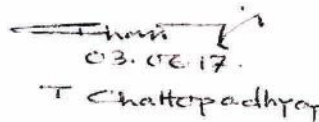 03.06.17.
T Chattopadhyay